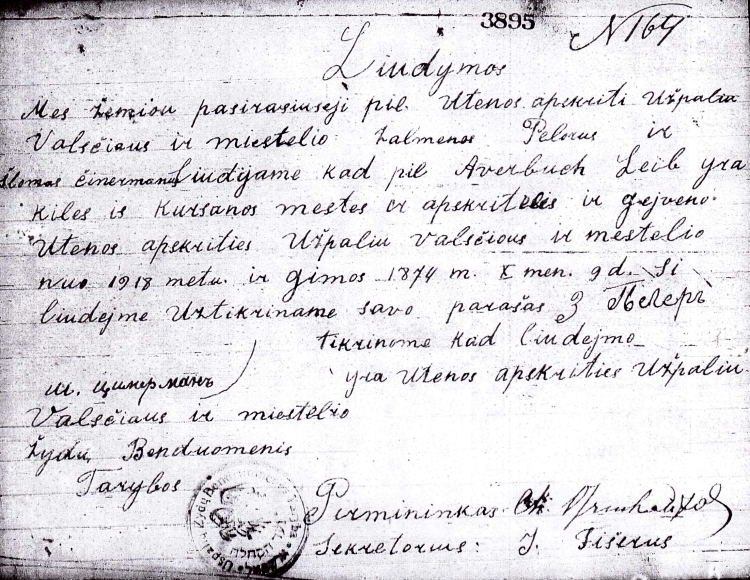 3895 N 164
Liudymos
Mes žemiou pasirasiuseji pil. Utenos apskriti Užpaliu
Valsčiaus ir miestelio Zalmenos Pelorus ir
Šlomas Cinermanas Liudijame kad pil Averbuch Leib yra
kiles is Kursanos mestes ir apskrities ir gejveno
Utenos apskrities Užpaliu Valsčious ir mestelio
nuo 1918 metu. ir gimos 1874 m. X men. 9 d. Si
liudejme Uztikriname savo parašas З Пелеръ
tikrinome kad liudejmo
ш. цинерманъ yra Utenos apskrities Užpaliu
Valsčiaus ir miestelio
žydu Benduomenis
Tarybos
Pirmininkas
Sekretorius: J. Fišerus